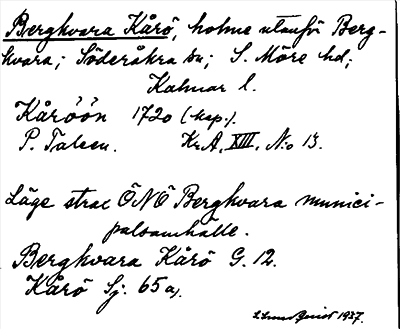 Bergkvara Kårö, holme utanför Berg-
kvara; Söderåkra sn; S. Möre hd;
Kalmar l.
Kåröön 1720 (kap.).
P. Kr.A, XIII, N:o 13.
Läge strax ÖNÖ Bergkvara munici-
palsamhälle.
Bergkvara Kårö G. 12.
Kårö Sj. 65 a).
1937.